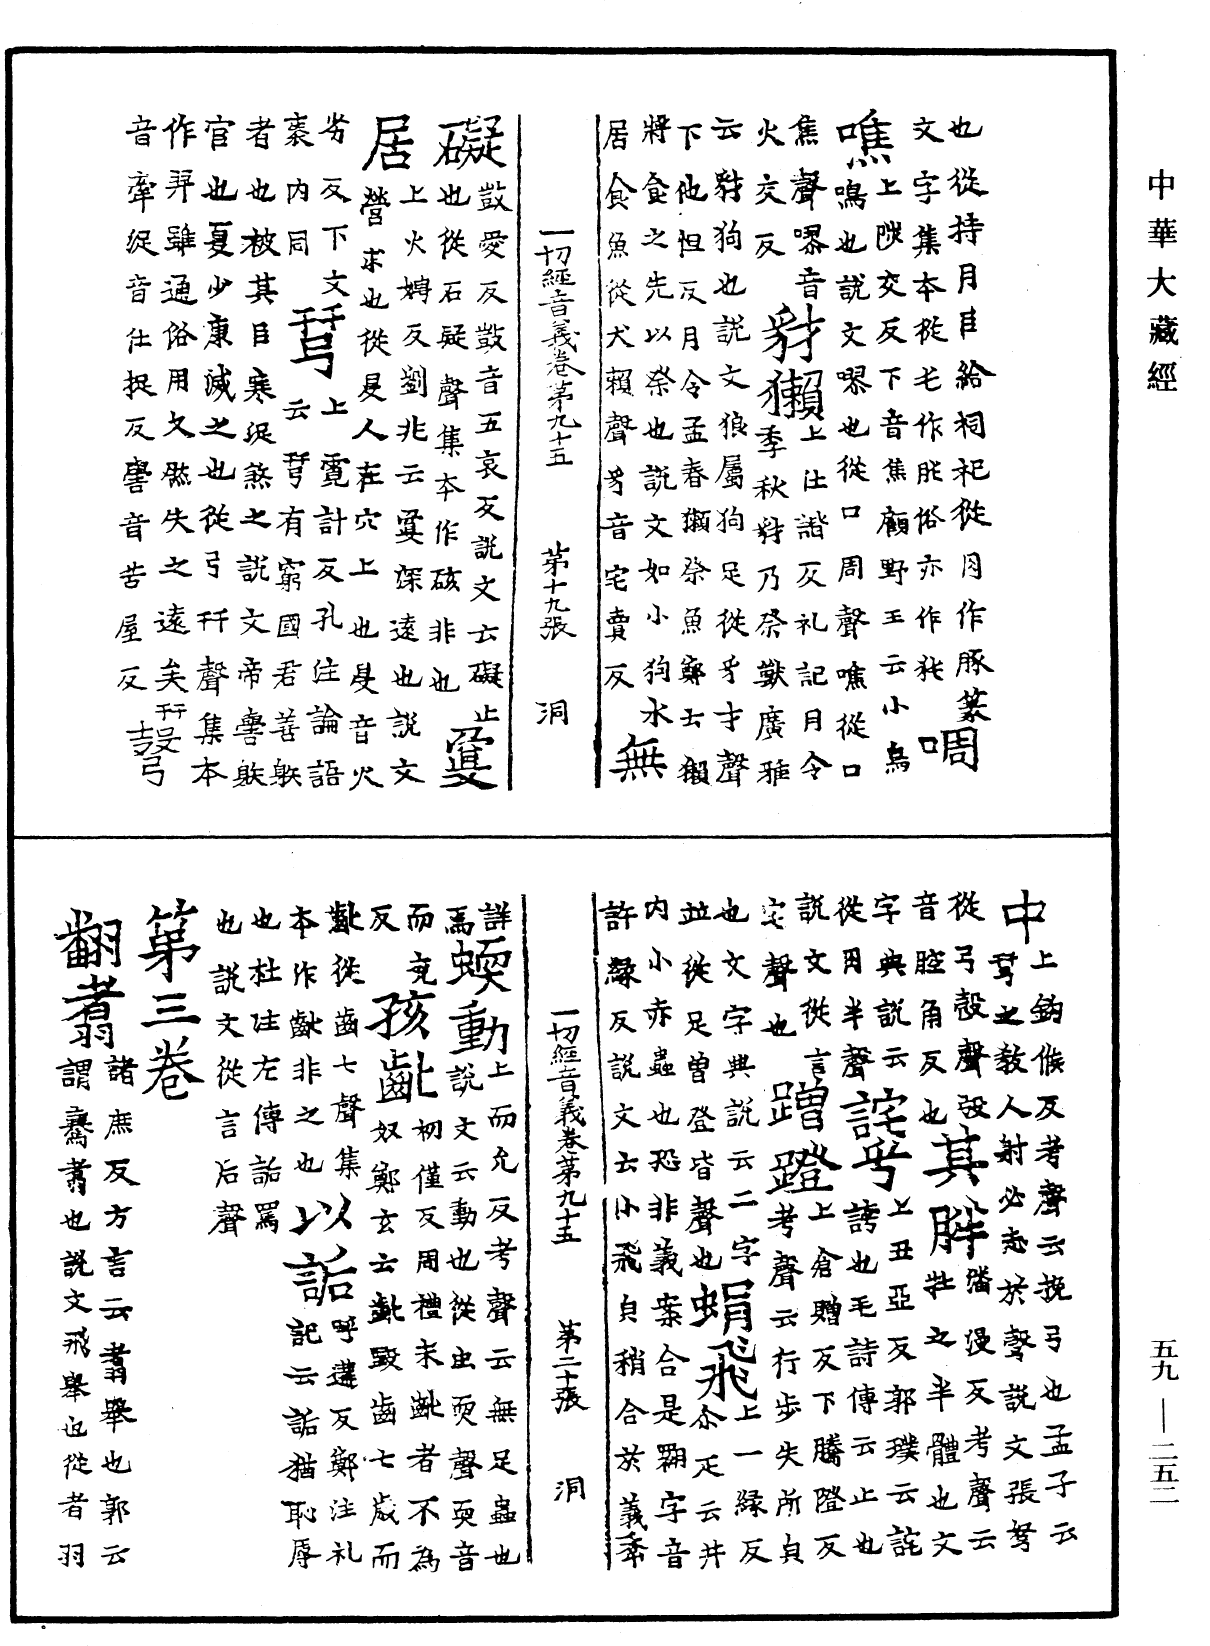 中華大藏經
也從持月自給祠祀從月作豚篆啁
文字集本從乇作㡯俗亦作㹠
噍上陟交反下音焦顧野王云小鳥
鳴也說文嘐也從口周聲噍從口
焦聲嘐音豺獺上仕諧反礼記月令
火交反季秋豺乃祭獸廣雅
云豺狗也說文狼屬狗足從豸才聲
下他怛反月令孟春獺祭魚鄭云獺
將食之先以祭也說文如小狗水
居食魚從犬賴聲豸音宅賣反無
一切經音義卷第九十五 第十九張 洞
礙㱯愛反㱯音五哀反說文云礙止
也從石疑聲集本作硋非也敻
居上火娉反劉兆云敻深遠也說文
營求也從𥄎人在穴上也𥄎音火
劣反下文羿上霓計反孔注論語
裹內同云羿有窮國君善䠶
者也被其臣寒浞煞之說文帝嚳䠶
官也夏少康滅之也從弓幵聲集本
作羿雖通俗用久然失之遠矣
音牽浞音仕捉反嚳音苦屋反彀
中上鈎候反考聲云挽弓也孟子云
羿之教人射必志於彀說文張弩
從弓㱿聲㱿其胖潘漫反考聲云
音腔角反也牲之半體也文
字典說云詫𠔃上丑亞反郭璞云詫
從肉半聲誇也毛詩傳云止也
說文從言蹭蹬上倉贈反下騰隥反
宅聲也考聲云行步失所皃
也文字典說云二字蜎飛上一緣反
並從足曾登皆聲也尒疋云井
內小赤蟲也恐非義案合是翾字音
許緣反說文云小飛皃稍合於義
詳蝡動上而允反考聲云無足蟲也
焉說文云動也從虫耎聲耎音
而兗孩齔初僅反周禮未齔者不為
反奴鄭玄云齔毀齒七歲而
齔從齒七聲集以詬呼遘反鄭注礼
本作齓非之也記云詬猶恥辱
也杜注左傳詬罵
也說文從言后聲
第三卷
翻翥諸庶反方言云翥舉也郭云
謂鶱翥也說文飛舉也從者羽
一切經音義卷第九十五 第二十張 洞
五九—二五二